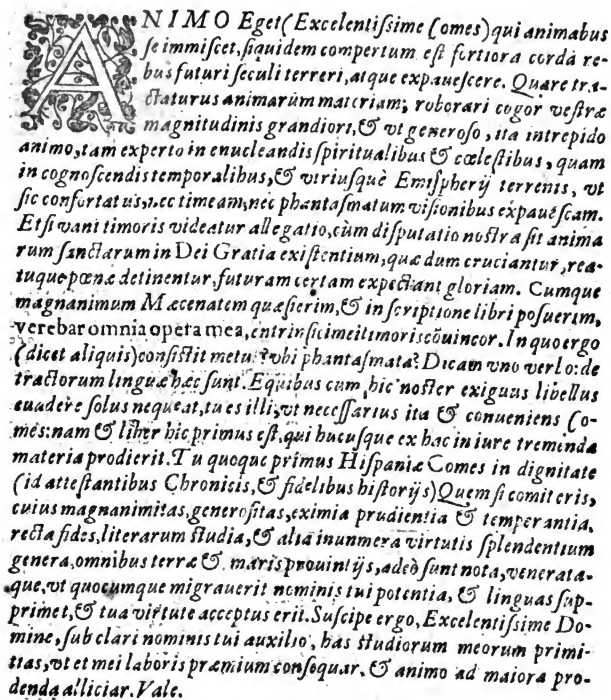 ANIMO Eget (Excelentiſsime Comes) qui animabus
ſe immiſcet, ſiquidem compertum eſt fortiora corda re-
bus futuri ſeculi terreri, atque expaueſcere. Quare tra-
ctaturus animarum materiam; roborari cogor veſtræ
magnitudinis grandiori, & vt generoſo, ita intrepido
animo, tam experto in enucleandis ſpiritualibus & cœleſtibus, quam
in cognoſcendis temporalibus, & vtriuſquè Emiſpherij terrenis, vt
ſic confortatus, nec timeam, nec phantaſmatum viſionibus expaueſcam.
Etſi vani timoris videatur allegatio, cùm diſputatio noſtra ſit anima
rum ſanctarum in Dei Gratia exiſtentium, quæ dum cruciantur, rea-
tuque pœnæ detinentur, futuram certam expectant gloriam. Cumque
magnanimum Mæcenatem quæſierim, & in ſcriptione libri poſuerim,
verebar omnia opera mea, & intrinſici mei timoris cõuincor. In quo ergo
(dicet aliquis) conſiſtit metus? vbi phantaſmata? Dicam vno verbo: de
tractorum linguæ hæc ſunt. E quibus cum, hic noſter exiguus libellus
euadere ſolus nequeat, tu es illi, vt neceſſarius ita & conueniens Co-
mes: nam & liber hic primus eſt, qui hucuſque ex hac in iure tremenda
materia prodierit. Tu quoque primus Hiſpaniæ Comes in dignitate
(id atteſtantibus Chronicis, & fidelibus hiſtorijs) Quem ſi comit eris,
cuius magnanimitas, generoſitas, eximia prudientia & temperantia,
recta fides, literarum ſtudia, & alia inunmera virtutis ſplendentium
genera, omnibus terræ & maris prouintijs, adeò ſunt nota, venerata-
que, vt quocumque migrauerit nominis tui potentia, & linguas ſup-
primet, & tua virtute acceptus erit. Suſcipe ergo, Excelentiſsime Do-
mine, ſub clari nominis tui auxilio, has ſtudiorum meorum primi-
tias, vt et mei laboris præmium conſequar, & animo ad maiora pro-
denda alliciar. Vale.